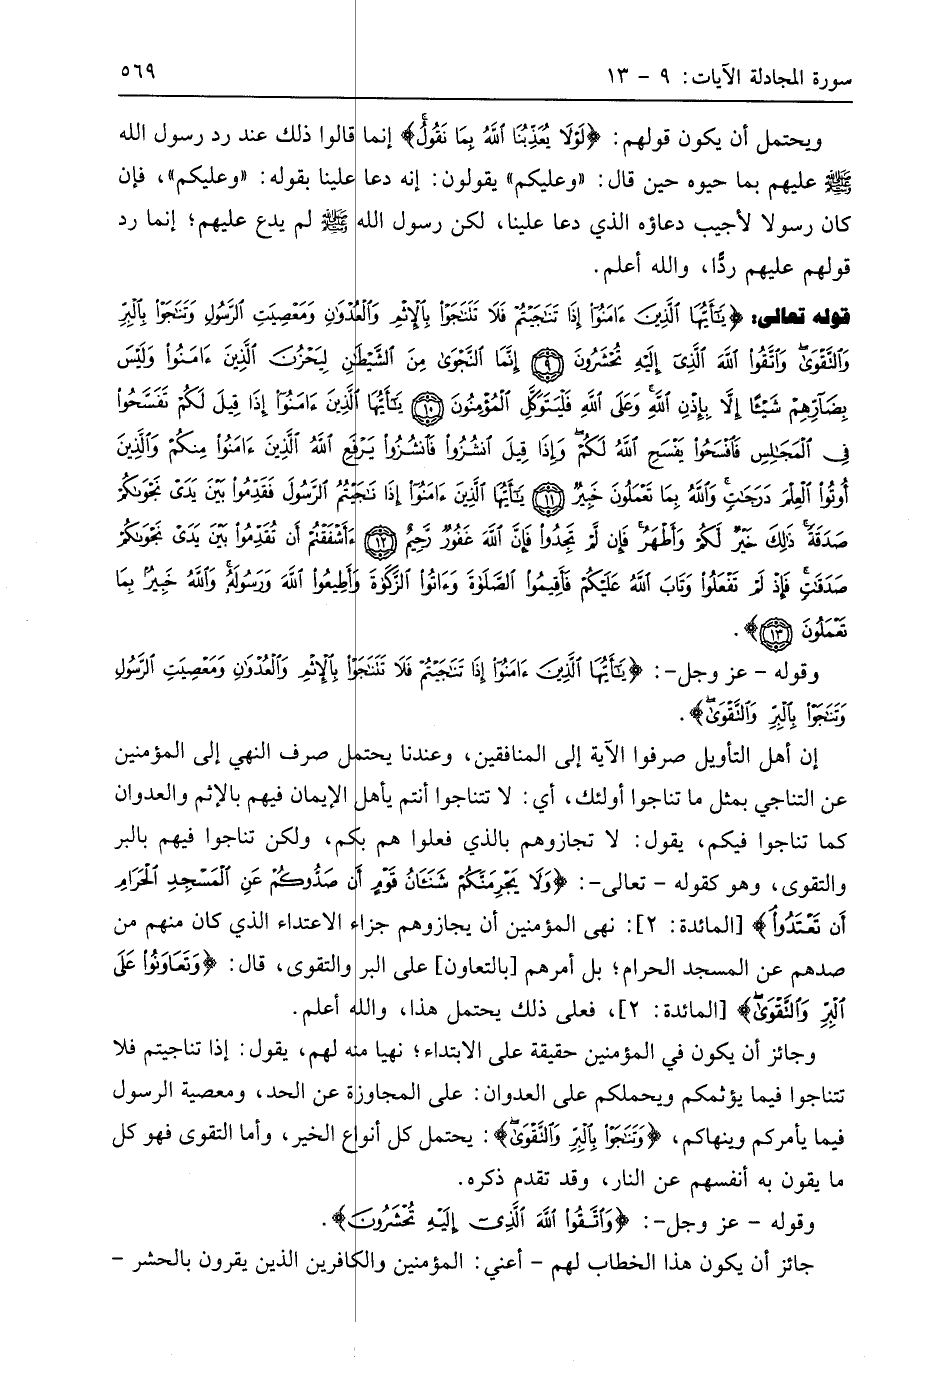 سورة المجادلة الآيات: ٩ - ١٣
٥٦٩
ويحتمل أن يكون قولهم: ﴿لَوْلَا يُعَذِّبُنَا ٱللَّهُ بِمَا نَقُولُۚ﴾ إنما قالوا ذلك عند رد رسول الله
ﷺ عليهم بما حيوه حين قال: «وعليكم» يقولون: إنه دعا علينا بقوله: «وعليكم»، فإن
كان رسولا لأجيب دعاؤه الذي دعا علينا، لكن رسول الله ﷺ لم يدع عليهم؛ إنما رد
قولهم عليهم ردًّا، والله أعلم.
قوله تعالى: ﴿يَٰٓأَيُّهَا ٱلَّذِينَ ءَامَنُوٓا۟ إِذَا تَنَٰجَيْتُمْ فَلَا تَتَنَٰجَوْا۟ بِٱلْإِثْمِ وَٱلْعُدْوَٰنِ وَمَعْصِيَتِ ٱلرَّسُولِ وَتَنَٰجَوْا۟ بِٱلْبِرِّ
وَٱلتَّقْوَىٰۖ وَٱتَّقُوا۟ ٱللَّهَ ٱلَّذِىٓ إِلَيْهِ تُحْشَرُونَ ٩ إِنَّمَا ٱلنَّجْوَىٰ مِنَ ٱلشَّيْطَٰنِ لِيَحْزُنَ ٱلَّذِينَ ءَامَنُوا۟ وَلَيْسَ
بِضَآرِّهِمْ شَيْـًٔا إِلَّا بِإِذْنِ ٱللَّهِۚ وَعَلَى ٱللَّهِ فَلْيَتَوَكَّلِ ٱلْمُؤْمِنُونَ ١٠ يَٰٓأَيُّهَا ٱلَّذِينَ ءَامَنُوٓا۟ إِذَا قِيلَ لَكُمْ تَفَسَّحُوا۟
فِى ٱلْمَجَٰلِسِ فَٱفْسَحُوا۟ يَفْسَحِ ٱللَّهُ لَكُمْۖ وَإِذَا قِيلَ ٱنشُزُوا۟ فَٱنشُزُوا۟ يَرْفَعِ ٱللَّهُ ٱلَّذِينَ ءَامَنُوا۟ مِنكُمْ وَٱلَّذِينَ
أُوتُوا۟ ٱلْعِلْمَ دَرَجَٰتٍۚ وَٱللَّهُ بِمَا تَعْمَلُونَ خَبِيرٌ ١١ يَٰٓأَيُّهَا ٱلَّذِينَ ءَامَنُوٓا۟ إِذَا نَٰجَيْتُمُ ٱلرَّسُولَ فَقَدِّمُوا۟ بَيْنَ يَدَىْ نَجْوَىٰكُمْ
صَدَقَةًۚ ذَٰلِكَ خَيْرٌ لَّكُمْ وَأَطْهَرُۚ فَإِن لَّمْ تَجِدُوا۟ فَإِنَّ ٱللَّهَ غَفُورٌ رَّحِيمٌ ١٢ ءَأَشْفَقْتُمْ أَن تُقَدِّمُوا۟ بَيْنَ يَدَىْ نَجْوَىٰكُمْ
صَدَقَٰتٍۚ فَإِذْ لَمْ تَفْعَلُوا۟ وَتَابَ ٱللَّهُ عَلَيْكُمْ فَأَقِيمُوا۟ ٱلصَّلَوٰةَ وَءَاتُوا۟ ٱلزَّكَوٰةَ وَأَطِيعُوا۟ ٱللَّهَ وَرَسُولَهُۥۚ وَٱللَّهُ خَبِيرٌۢ بِمَا
تَعْمَلُونَ ١٣﴾.
وقوله - عز وجل-: ﴿يَٰٓأَيُّهَا ٱلَّذِينَ ءَامَنُوٓا۟ إِذَا تَنَٰجَيْتُمْ فَلَا تَتَنَٰجَوْا۟ بِٱلْإِثْمِ وَٱلْعُدْوَٰنِ وَمَعْصِيَتِ ٱلرَّسُولِ
وَتَنَٰجَوْا۟ بِٱلْبِرِّ وَٱلتَّقْوَىٰۖ﴾.
إن أهل التأويل صرفوا الآية إلى المنافقين، وعندنا يحتمل صرف النهي إلى المؤمنين
عن التناجي بمثل ما تناجوا أولئك، أي: لا تتناجوا أنتم يأهل الإيمان فيهم بالإثم والعدوان
كما تناجوا فيكم، يقول: لا تجازوهم بالذي فعلوا هم بكم، ولكن تناجوا فيهم بالبر
والتقوى، وهو كقوله - تعالى-: ﴿وَلَا يَجْرِمَنَّكُمْ شَنَـَٔانُ قَوْمٍ أَن صَدُّوكُمْ عَنِ ٱلْمَسْجِدِ ٱلْحَرَامِ
أَن تَعْتَدُوا۟ۘ﴾ [المائدة: ٢]: نهى المؤمنين أن يجازوهم جزاء الاعتداء الذي كان منهم من
صدهم عن المسجد الحرام؛ بل أمرهم [بالتعاون] على البر والتقوى، قال: ﴿وَتَعَاوَنُوا۟ عَلَى
ٱلْبِرِّ وَٱلتَّقْوَىٰۖ﴾ [المائدة: ٢]، فعلى ذلك يحتمل هذا، والله أعلم.
وجائز أن يكون في المؤمنين حقيقة على الابتداء؛ نهيا منه لهم، يقول: إذا تناجيتم فلا
تتناجوا فيما يؤثمكم ويحملكم على العدوان: على المجاوزة عن الحد، ومعصية الرسول
فيما يأمركم وينهاكم، ﴿وَتَنَٰجَوْا۟ بِٱلْبِرِّ وَٱلتَّقْوَىٰۖ﴾: يحتمل كل أنواع الخير، وأما التقوى فهو كل
ما يقون به أنفسهم عن النار، وقد تقدم ذكره.
وقوله - عز وجل-: ﴿وَٱتَّقُوا۟ ٱللَّهَ ٱلَّذِىٓ إِلَيْهِ تُحْشَرُونَ﴾.
جائز أن يكون هذا الخطاب لهم - أعني: المؤمنين والكافرين الذين يقرون بالحشر -